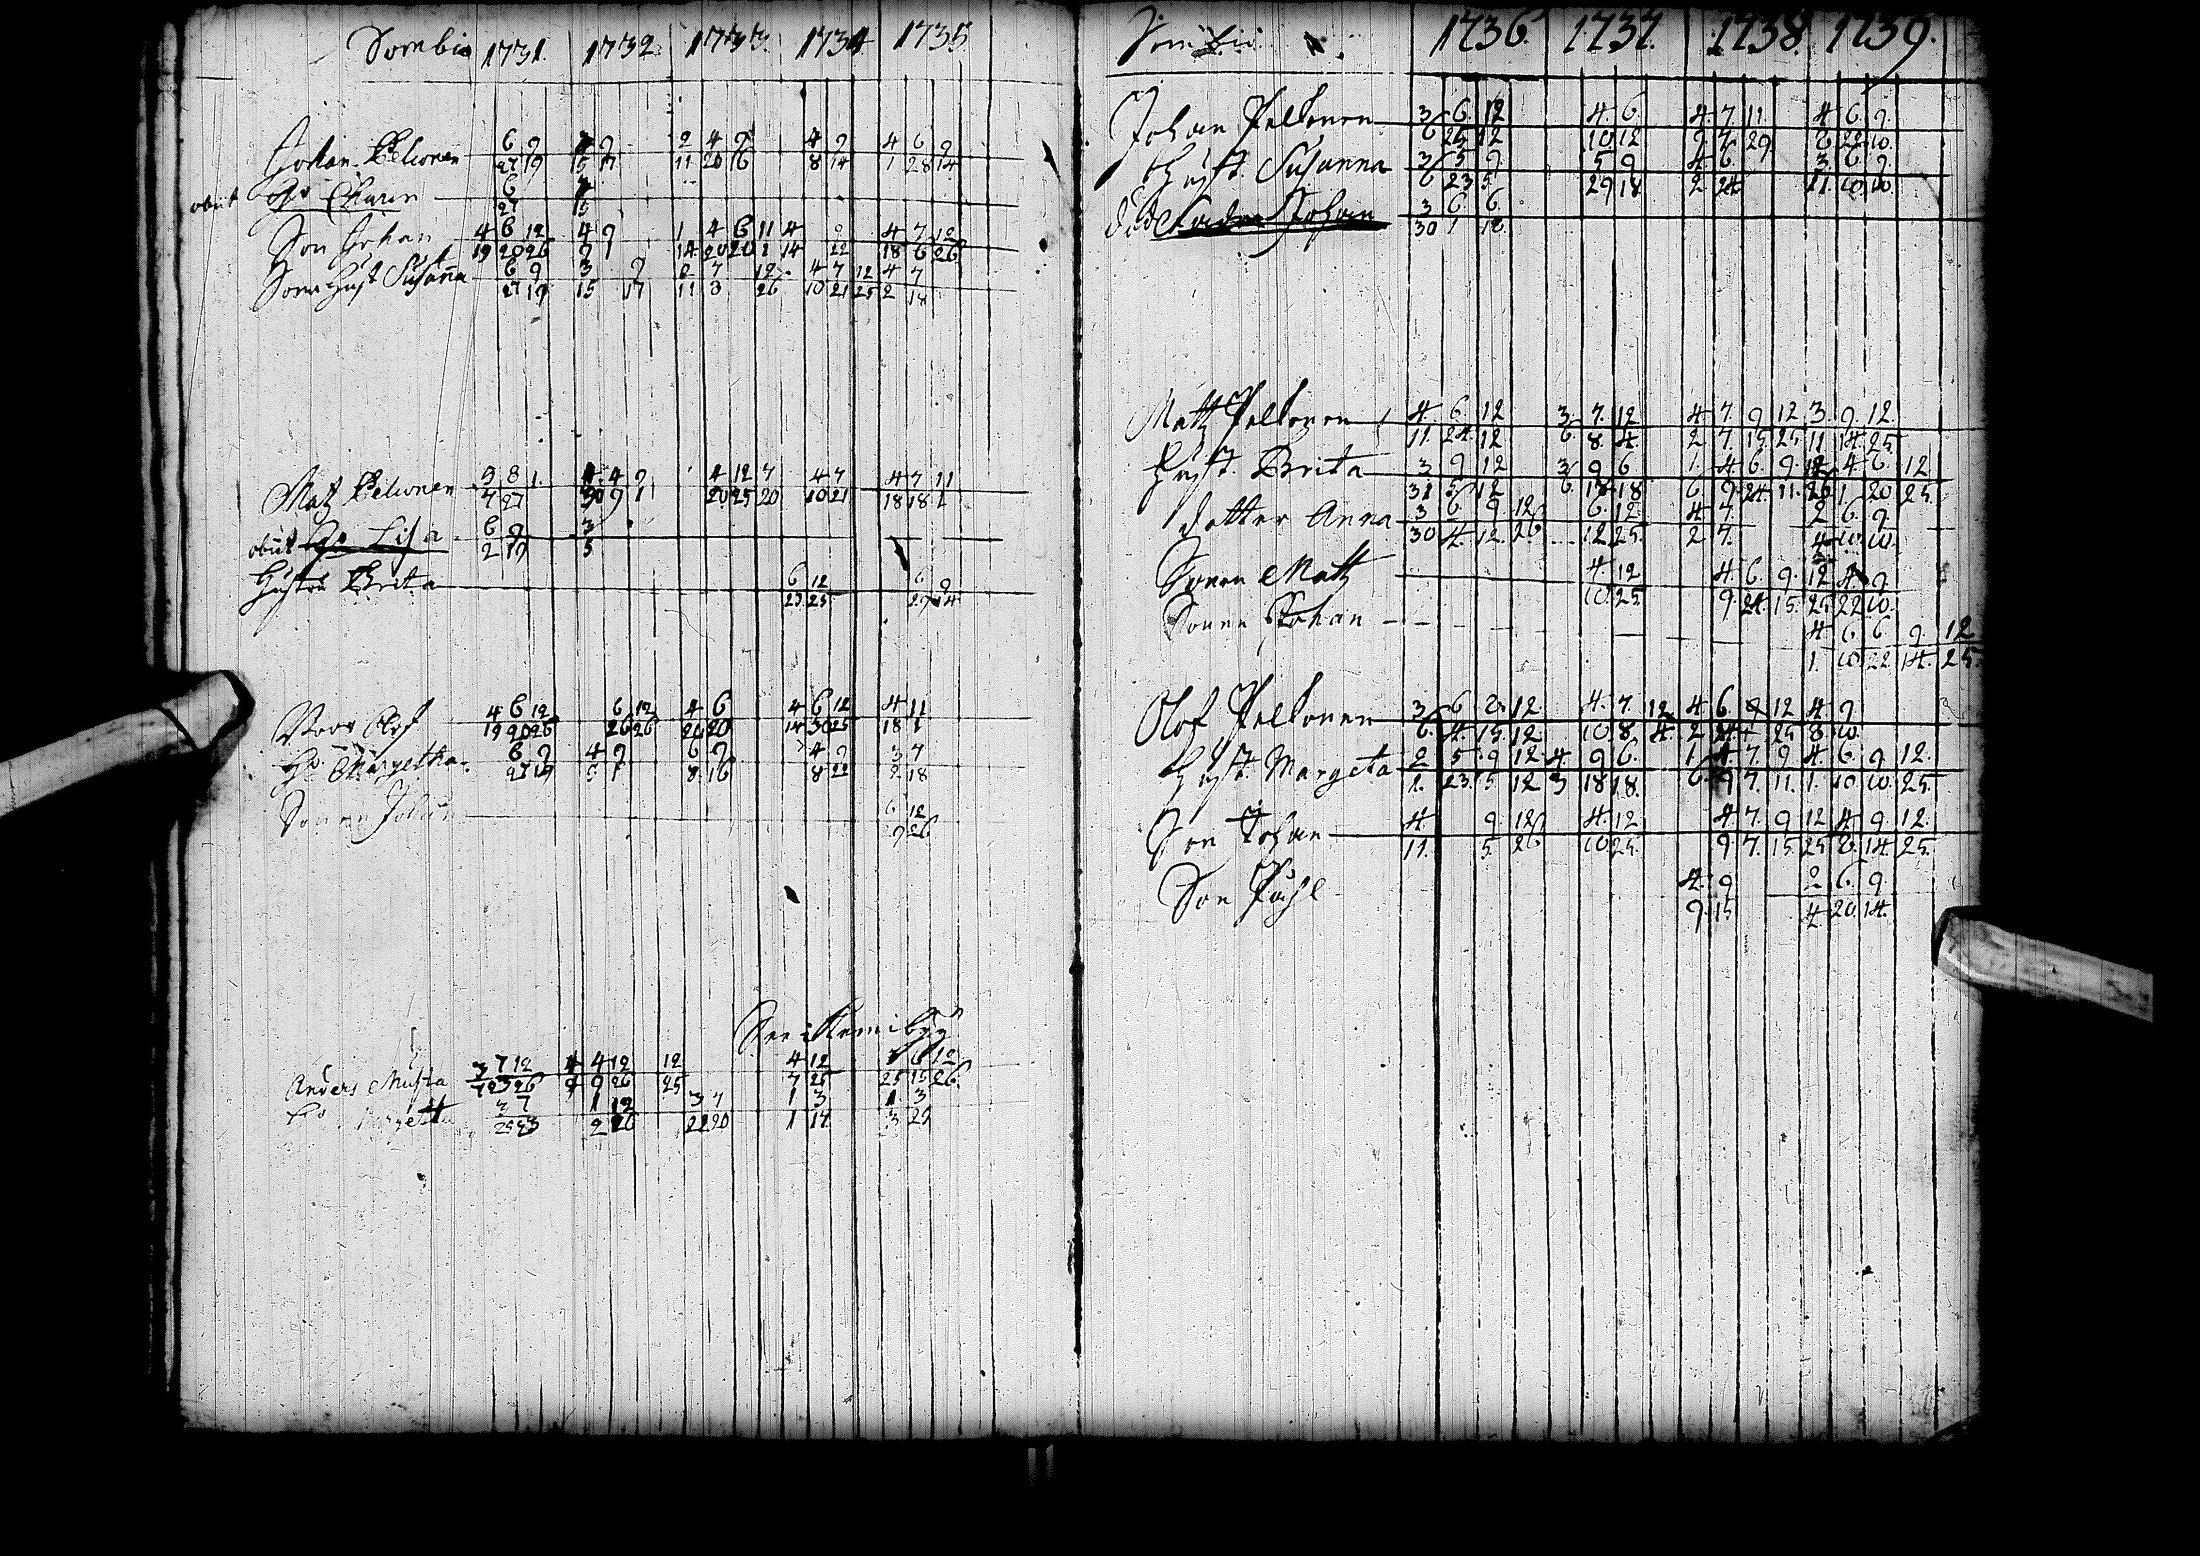 Sombio 1731. 1732 1733. 1734 1735.
Johan Pelconen
6 9 4 9 2 4 9 4 9 4 6 9
27 19 15 17 11 20 16 8 14 1 28 14
obiit H:o Karin
6 4
27 15
Son Johan
4 6 12 4 9 1 4 6 11 4 9 4 7 12
19 20 26 9 1 14 20 20 1 14 22 18 6 26
Sons Hust Susanna
6 9 3 9 2 7 12 4 7 12 4 7
27 19 15 17 11 3 26 10 21 25 2 18
Matz Pelconen
3 8 1 4 9 4 12 7 4 7 4 7 11
7 27 30 9 1 20 25 20 10 21 18 18 1
obiit H:o Lisa
6 9 3
2 19 5
Hustro Brita
6 12 6 9
23 25 29 14
Olof
4 6 12 6 12 4 6 4 6 12 4 11
19 20 26 26 26 20 20 14 30 25 18 1
H:o Margetha
6 9 4 9 6 9 4 9 3 7
27 19 9 1 8 16 8 22 2 18
Sonen Johan
6 12
9 26
Anders Musta
3 7 12 4 4 12 12 4 12 6 12
12 3 26 9 9 26 25 7 25 25 15 26
H:o Margetta
3 7 1 12 3 7 1 3 1 3
25 23 2 26 22 20 1 17 3 29
1736. 1737. 1738. 1739.
Johan Pelkonen
3 6 12 4 6 4 7 11 4 6 9
6 25 12 10 12 9 7 29 8 22 10
Hust. Susanna
3 5 9 5 9 4 6 3 6 9
6 23 5 29 18 2 24 11 10 10
Johan
3 6 6
30 1 12
Matz Pelkonen
4 6 12 3 7 12 4 7 9 12 3 9 12
11 24 12 6 8 4 2 7 15 25 11 14 25
Hust. Brita
3 9 12 3 9 6 1 4 6 9 12 4 6 12
31 5 12 6 18 18 6 9 24 11 26 1 20 25
dotter Anna
3 6 9 12 6 12 4 7 2 6 9
30 4 12 26 12 25 2 7 4 10 10
Sonen Matz
4 12 4 6 9 12 4 9
10 25 9 24 15 25 22 10
Sonen Johan
4 6 6 9 12
1 10 22 14 25
Olof Pelkonen
3 6 9 12 4 7 12 4 6 9 12 4 9
6 4 15 12 10 8 4 2 24 25 8 10
Hust. Margeta
2 5 9 12 4 9 6 1 4 7 9 4 6 9 12
1 23 5 12 3 18 18 6 9 7 11 1 10 10 25
Son Johan
4 9 12 4 12 4 7 9 12 4 9 12
11 5 26 10 25 9 7 15 25 8 14 25
Son Påhl
4 9 2 6 9
9 15 4 20 14